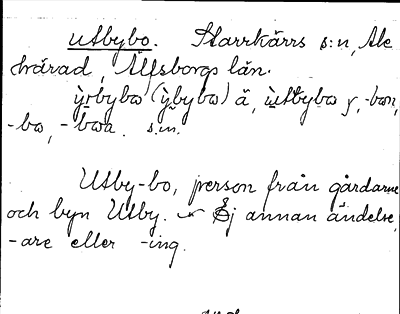 Utbybo. Starrkärrs s:n, Ale
härad, Älfsborgs län.
ỳrbybω (ỳbybω) ä, ùtbybω y, -bωn,
-bω, -bωa. s.m.
Utby-bo, person från gårdarne
och byn Utby. Ej annan ändelse,
-are eller -ing.